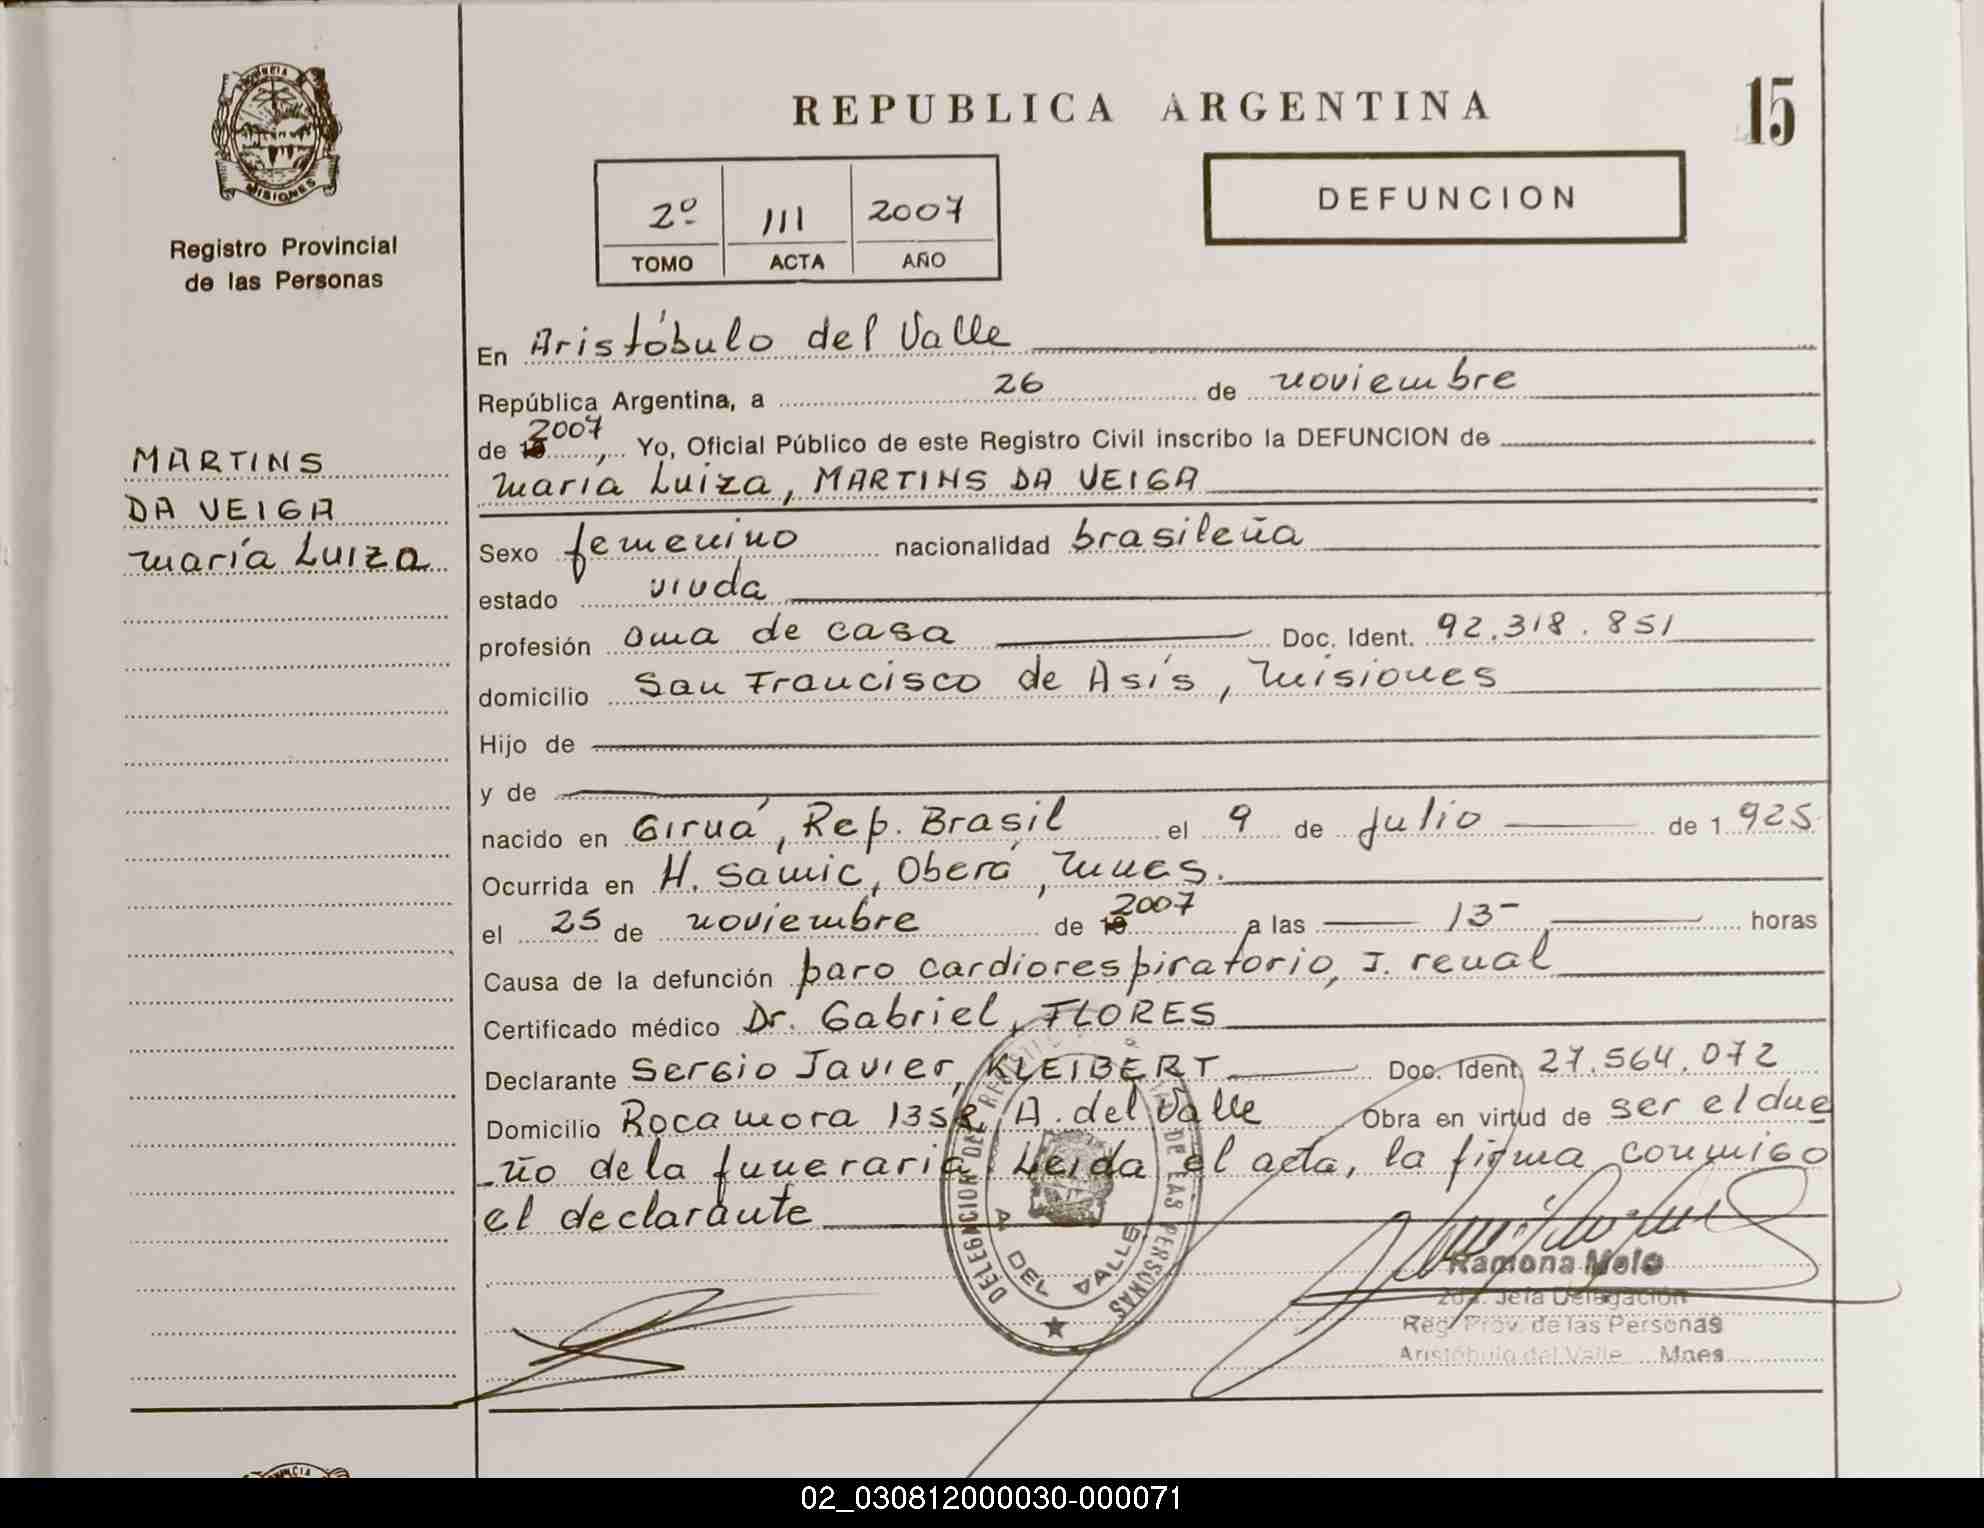 PROVINCIA
MISIONES
Registro Provincial
de las Personas
MARTINS
DA VEIGA
María Luiza
REPUBLICA ARGENTINA
15
DEFUNCION
2º 111 2007
TOMO ACTA AÑO
En Aristóbulo del Valle
República Argentina, a 26 de noviembre
de 2007, Yo, Oficial Público de este Registro Civil inscribo la DEFUNCION de
María Luiza, MARTINS DA VEIGA
Sexo femenino nacionalidad brasileña
estado viuda
profesión ama de casa Doc. Ident. 92.318.851
domicilio San Francisco de Asís, Misiones
Hijo de
y de
nacido en Giruá, Rep. Brasil el 9 de Julio de 1 925
Ocurrida en H. Samic, Oberá, Mnes.
el 25 de noviembre de 2007 a las 13- horas
Causa de la defunción paro cardiorespiratorio, I. renal
Certificado médico Dr. Gabriel, FLORES
Declarante Sergio Javier, KLEIBERT Doc. Ident. 27.564.072
Domicilio Rocamora 1352, A. del Valle Obra en virtud de ser el due
-ño de la funeraria. Leida el acta, la firma conmigo
el declarante
DELEGACION DEL REGISTRO DE LAS PERSONAS
A DEL VALLE
Ramona Melo
2da. Jefa Delegación
Reg. Prov. de las Personas
Aristóbulo del Valle Mnes
02_030812000030-000071